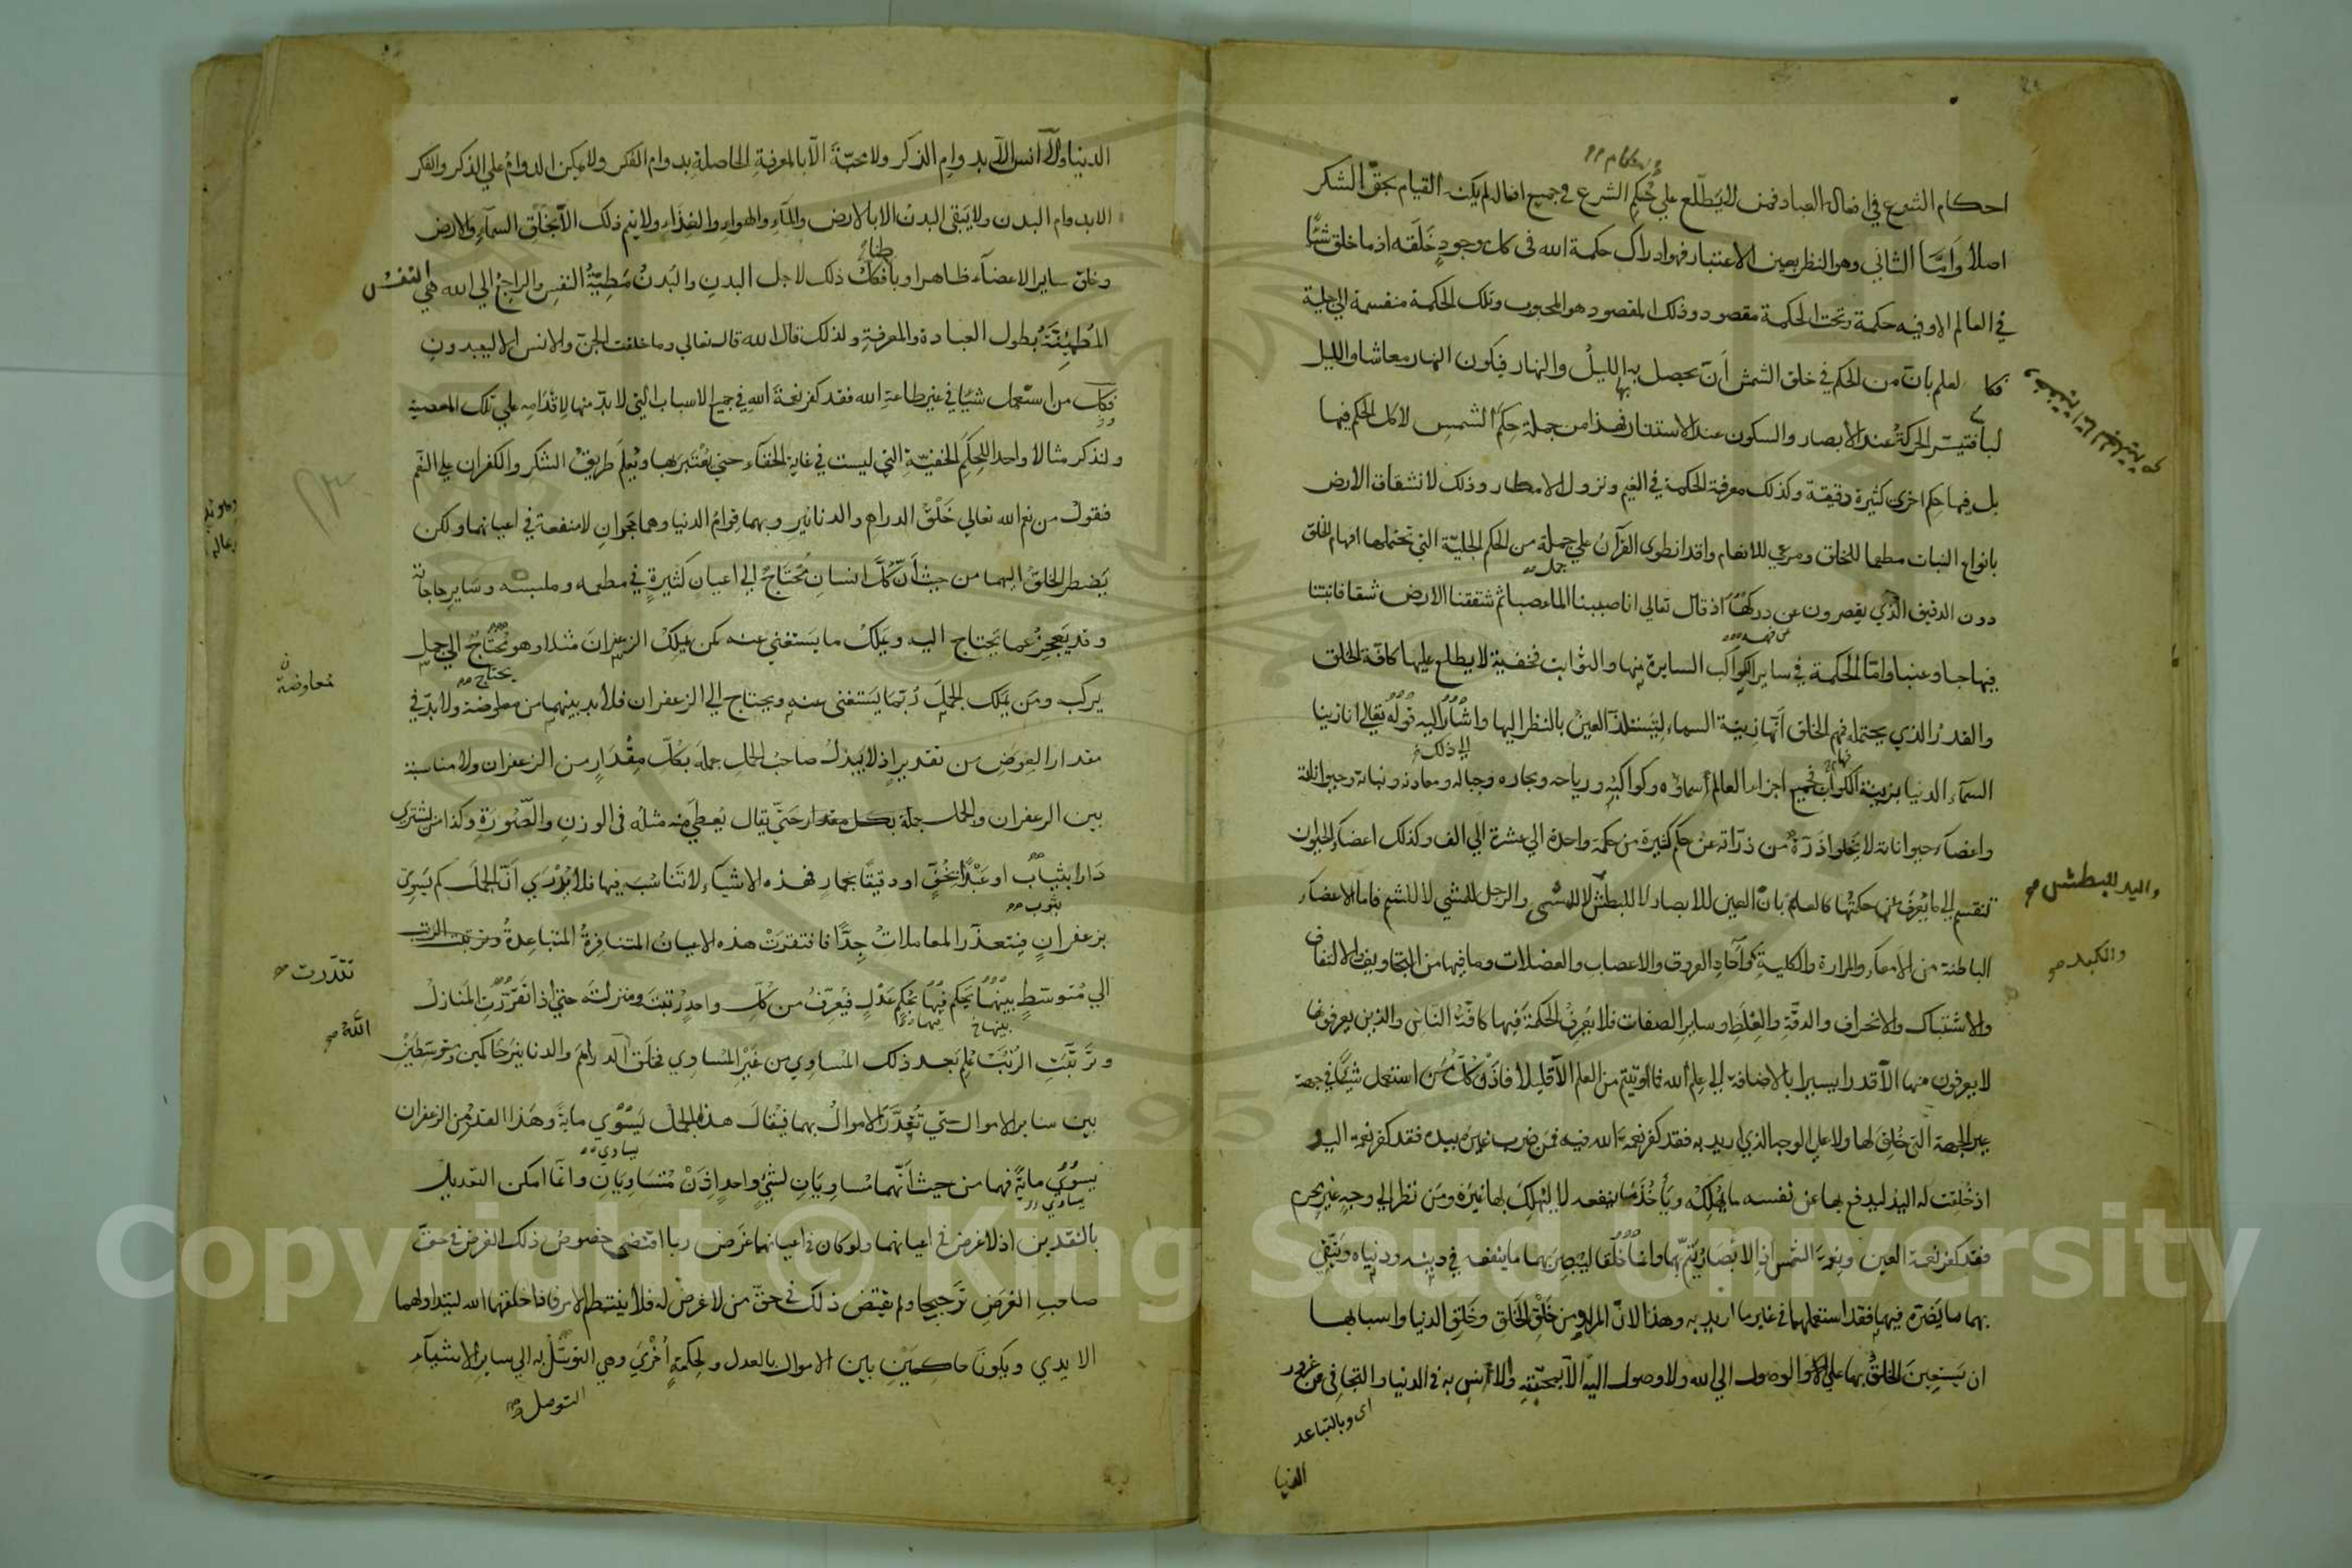 احكام الشرع في افعال العباد فمن لا يطّلع علي حُكم الشرع في جميع افعاله لم يكنه القيام بحقّ الشكر
اصلا وَامّا الثاني وهو النظر بعين الاعتبار فهو ادراك حكمة الله في كل موجودٍ خَلَقه اذ ما خلق شيئًا
في العالم الا وفيه حكمة وتحت الحكمة مقصود وذلك المقصود هو المحبوب وتلك الحكمة منقسمة الي جلية
لعلم بان من الحكم في خلق الشمس أن يحصل بها الليل والنهار فيكون النهار معاشا والليل
لباسا فتيسّر الحركةُ عند الابصار والسكون عند الاستتار فهذا من جملة حِكَم الشمس لا كل الحكم فيها
بل فيها حِكم اخرى كثيرة دقيقة وكذلك معرفة الحكمة في الغيم ونزول الامطار وذلك لانشقاق الارض
بانواع النبات مطعما للخلق ومرعي للانعام وقد انطوى القرآن علي جملة من الحكم الجليّة التي تحتملها افهام الخلق
دون الدقيق الّذي يقصرون عن دركها اذ قال تعالى انا صببنا الماء صبا ثم شققنا الارض شقا فانبتنا
فيها حبا وعنبا وامّا الحكمة في ساير الكواكب السايرة منها والثوابت فخفيّة لا يطلع عليها كافّة الخلق
والقدرُ الذي يحتمله فهم الخلق أنّها زينة السماء لتستلذّ العين بالنظر اليها واشارَ اليه قوله تعالي انا زينا
السمآء الدنيا بزينة الكواكب فجميع اجزاء العالم سماؤه وكواكبه ورياحه وبحاره وجباله ومعادنه ونباته وحيواناته
واعضآء حيواناته لا تخلوا ذرّة من ذرّاته عن حكم كثيرة من حكمة واحدة الي عشرة الي الف وكذلك اعضآء الحيوان
تنقسم الي ما يُعرَف حكمتُها كالعلم بانّ العين للابصار لا للبطش لا للمشي والرجل للمشي لا للشم فاما الاعضآء
الباطنة من الامعآء والمرارة والكلية وآحاد العروق والاعصاب والعضلات وما فيها من التجاويف والالتفاف
والاشتباك والانحراف والدقّة والغِلَظ وساير الصفات فلا يعرِفُ الحكمةَ فيها كافّة الناس والذين يعرفونها
لا يعرفون منها الّا قدرا يسيرا بالاضافة الي علم الله فما اوتيتم من العلم الّا قليلا فاذًا كلّ من استعمل شيئًا في جهة
غير الجهة التي خُلِقَ لها ولا علي الوجه الذي اريد به فقد كفر نعمة الله فيه فمن ضرب غيرَه بيده فقد كفر نعمة اليد
اذ خُلِقت له اليدُ ليدفع بها عن نفسه ما يُهلِكُه ويأخُذَ ما ينفعه لا ليُهلِكَ بها غيرَه ومن نظر الي وجهِ غير محرم
فقد كفر نعمة العين ونعمة الشمس اذ الابصارُ يتمّ بهما وانّما خُلقا ليُبصِرَ بهما ما ينفعه في دينه ودنياه ويتّقي
بهما ما يَضرّه فيهما فقد استعملهما في غير ما اريد به وهذا لانّ المراد من خَلْقِ الخلق وخَلقِ الدنيا واسبابها
ان يَستَعِينَ الخلقُ بها علي الوصول الي الله ولا وصول اليه الّا بمحبّته والانس به في الدنيا والتجافي عن غرور
اى وبالتباعد
الدنيا
واليد للبطش صح
والكبد صح
الدنيا ولا انس الا بدوام الذكر ولا محبّة الّا بالمعرفةِ الحاصلةِ بدوام الفكر ولا يمكن الدوامُ علي الذكر والفكر
الا بدوام البدن ولا يَبقى البدنُ الا بالارض والمآءِ والهواءِ والغذاء ولا يتم ذلك الّا بخلقِ السمآءِ والارض
وخلق ساير الاعضآء ظاهرا وباطنا فكلّ ذلك لاجل البدنِ والبَدنُ مَطِيّةُ النفسِ والراجعُ الي الله هي النفسُ
المُطمئِنَّةُ بطول العبادة والمعرفةِ ولذلك قال الله تعالي وما خلقت الجنّ والانس الا ليعبدونِ
فكل من استعمل شيئا في غير طاعة الله فقد كفر نعمةَ الله في جميع الاسباب التي لا بدّ منها لاقدامِه علي تلك المعصية
ولنذكر مثالا واحدا للحِكَمِ الخفيّةِ التي ليست في غاية الخفآء حتي يُعْتَبَر بها ويُعلَم طريقُ الشكر والكفران علي النعم
فنقول من نعم الله تعالي خَلْقُ الدراهم والدنانير وبهما قِوامُ الدنيا وهما حجرانِ لا منفعة في اعيانهما ولكن
يَضطر الخلقُ اليهما من حيثُ أنّ كُلّ انسانٍ مُحتَاجٌ الي اعيانٍ كثيرةٍ في مطعمه وملبسه وسَايرِ حاجاته
وقد يَعجِزُ عما يَحتاج اليه ويَملِكُ ما يَستغني عنه كمن يَملِكُ الزعفرانَ مثلا وهو مُحتَاجٌ الي جملٍ
يركبه ومَن يَملك الجَمَلَ رُبّما يَستغنى عنه ويحتاج الي الزعفران فلا بد بينهما من معاوضة ولا بدّ في
مقدار العِوَضِ من تقديرٍ اذ لا يَبذلُ صاحبُ الجملِ جملَه بكلّ مِقْدَارٍ من الزعفران ولا مناسبة
بين الزعفران والجمل حتّي يقال يُعطَي منه مثلُه في الوزنِ والصّورَةِ وكذا من يشتري
دَارا بثيابٍ او عَبْدًا بخُفٍّ او دقيقًا بحمارٍ فهذه الاشيآء لا تَناسُبَ فيها فلا يُدْرَي أنّ الجملَ كم يَسوِي
بزعفرانٍ فيتعذّر المعاملاتُ جِدًّا فافتقرَتْ هذه الاعيانُ المتنافِرةُ المتباعِدةُ
الي مُتوسّطٍ بينَهُما يَحكم فيها بحُكمٍ عَدْلٍ فيُعرَّفُ من كلّ واحدٍ رتبتَه ومنزلتَه حتي اذا تقرّرَتِ المَنازلُ
وترَتّبَتِ الرُتَبُ عُلِم بَعد ذلك المُسَاوِي من غَيْرِ المُسَاوي فخلَقَ الدراهمَ والدنانيرَ حَاكمين ومتوسّطَيْنِ
بين ساير الاموال حتّي تُقَدَّرَ الاموالُ بهما فيُقالَ هذا الجمل يَسْوَي مايةً وهذا القدرُ من الزعفران
يَسْوَي مايةً فهما من حيث أنّهما مُسَاوِيَانِ لشيٍ واحدٍ اِذَنْ مُتَسَاوِيَانِ وانما امكن التعديلُ
بالنقدين اذ لا غرض في اعيانهما ولو كان في اعيانهما غَرَض ربما اقتضى خصوصُ ذلك الغرض في حقّ
صاحبِ الغرَضِ ترجيحا ولم يقتضِ ذلك في حقّ من لا غرضَ له فلا ينتظم الامر فاذا خلقهما الله ليتداولهما
الايدي ويكونَا حاكمَيْنِ بين الاموال بالعدل ولحِكمةٍ اُخْرَي وهي التوسّلُ به الي سايرِ الاشيآءِ
التوصل صح
معاوضة ن
تقدّرت صح
اللّهُ صح
Copyright © King Saud University
1957